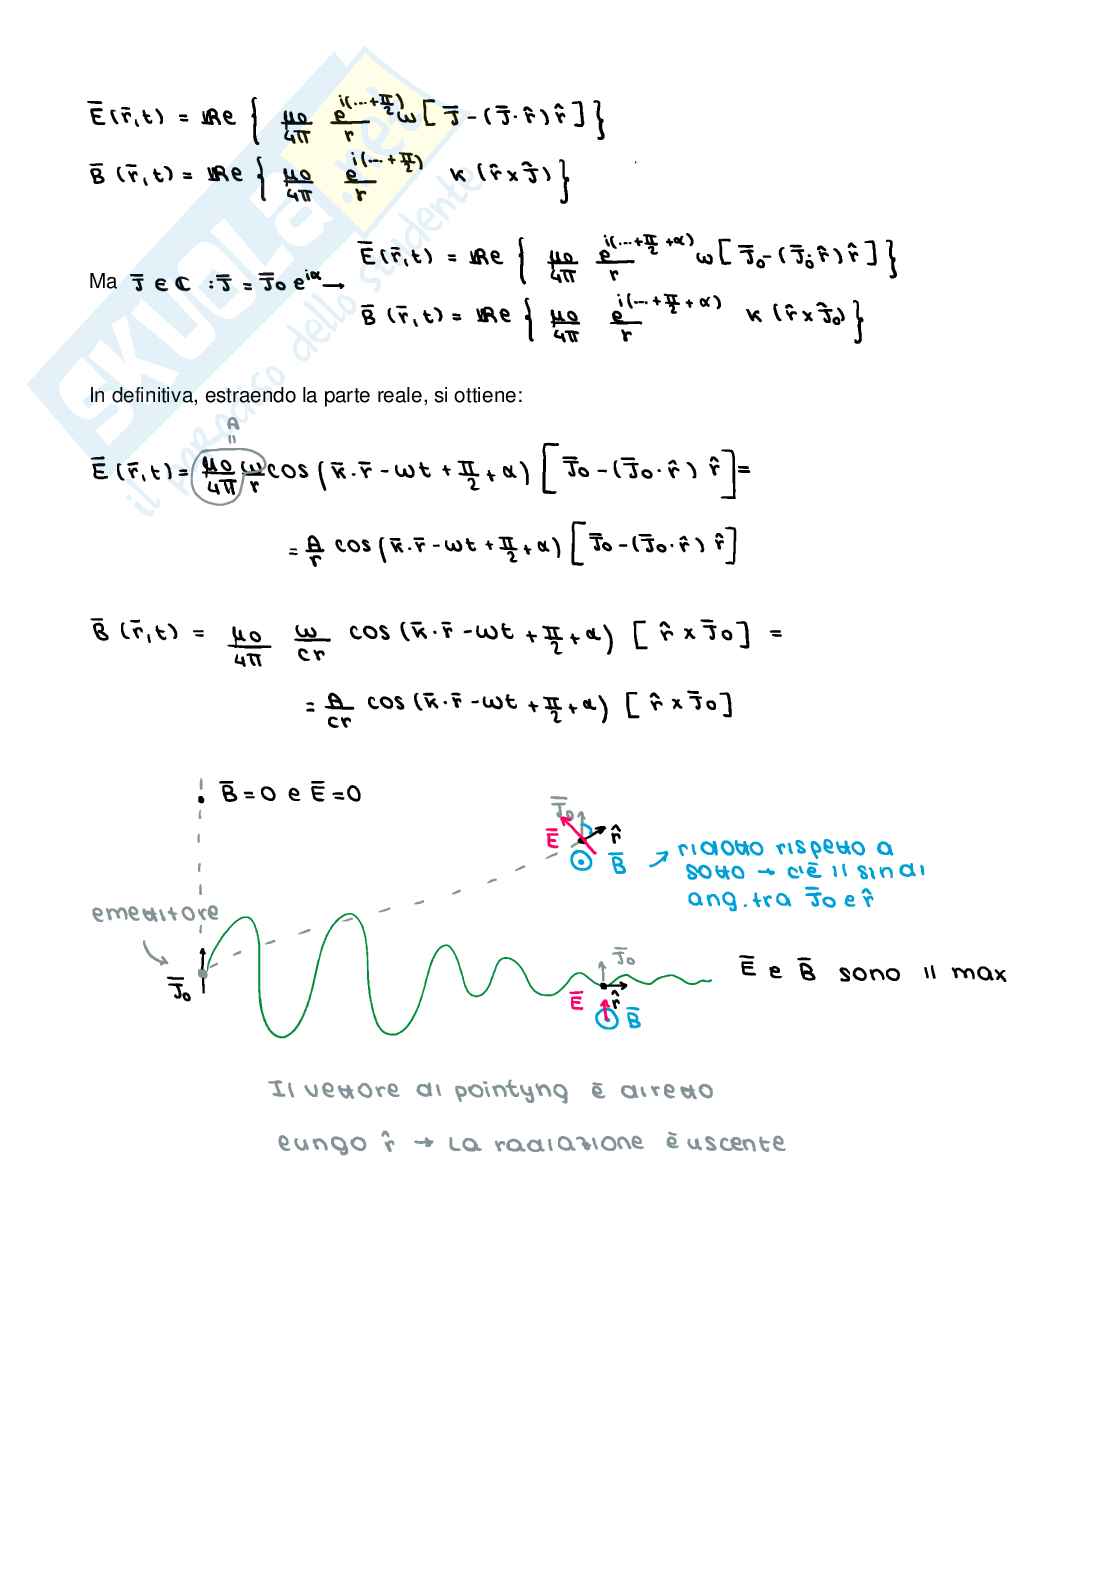 Ē(r̄,t) = Re { μ0/4π e^{i(...+π/2)}/r ω [ J̄ - (J̄·r̂) r̂ ] }
B̄(r̄,t) = Re { μ0/4π e^{i(...+π/2)}/r k (r̂ x J̄) }
Ē(r̄,t) = Re { μ0/4π e^{i(...+π/2+α)}/r ω [ J̄0 - (J̄0·r̂) r̂ ] }
Ma J̄ ∈ ℂ : J̄ = J̄0 e^{iα} →
B̄(r̄,t) = Re { μ0/4π e^{i(...+π/2+α)}/r k (r̂ x J̄0) }
In definitiva, estraendo la parte reale, si ottiene:
A
=
Ē(r̄,t) = μ0/4π ω/r cos(k̄·r̄ - ωt + π/2 + α) [ J̄0 - (J̄0·r̂) r̂ ] =
= A/r cos(k̄·r̄ - ωt + π/2 + α) [ J̄0 - (J̄0·r̂) r̂ ]
B̄(r̄,t) = μ0/4π ω/cr cos(k̄·r̄ - ωt + π/2 + α) [ r̂ x J̄0 ] =
= A/cr cos(k̄·r̄ - ωt + π/2 + α) [ r̂ x J̄0 ]
B̄ = 0 e Ē = 0
J̄0
Ē r̂
B̄ → ridotto rispetto a
sotto → c'è il sin di
ang. tra J̄0 e r̂
emettitore
J̄0
J̄0
Ē r̂
B̄
Ē e B̄ sono il max
Il vettore di pointyng è diretto
eungo r̂ → la radiazione è uscente
SKUOLA.net
il paradiso dello studente